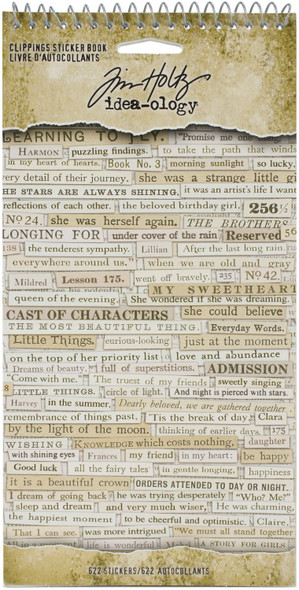 CLIPPINGS STICKER BOOK
LIVRE D'AUTOCOLLANTS
Tim Holtz
idea-ology
LEARNING TO FLY. Promise me one
HARMON puzzling findings. to take the path that winds
in my heart of hearts. Book No. 3 morning sunlight so lucky.
very detail of their journey. she was a strange little gi
THE STARS ARE ALWAYS SHINING. it was an artist's life I want
reflections of each other. the beloved birthday girl, 256½
No 24. she was herself again. THE BROTHER
LONGING FOR under cover of the rain Reserved 56
the tenderest sympathy. Lillian After the last long rain,
everywhere around us." when we are old and gray
Mildred Lesson 175. went off bravely. 235 No 42.
MY SWEETHEART
queen of the evening. She wondered if she was dreaming.
CAST OF CHARACTERS she could believe
THE MOST BEAUTIFUL THING. Everyday Words.
Little Things. curious-looking just at the moment
on the top of her priority list love and abundance
Dreams of beauty. full of superstitions. ADMISSION
Come with me." The truest of my friends sweetly singing
LITTLE THINGS. circle of light. And night is pierced with stars.
Harry in the summer, Dearly beloved, we are gathered together
remembrance of things past. 'Tis the break of day
by the light of the moon. thinking of earlier days. 175
WISHING KNOWLEDGE which costs nothing. daughter
with shining eyes Frances my friend in my heart: be happy
Good luck all the fairy tales in gentle longing, happiness
it is a beautiful crown ORDERS ATTENDED TO DAY OR NIGHT.
I dream of going back he was trying desperately "Who? Me?"
sleep and dream and very much wiser, He was charming,
the happiest moment to be cheerful and optimistic. Claire.
That I can see. was more intrigued "We must all stand together
life is wonderful A STORY FOR GIRLS
622 STICKERS/622 AUTOCOLLANTS